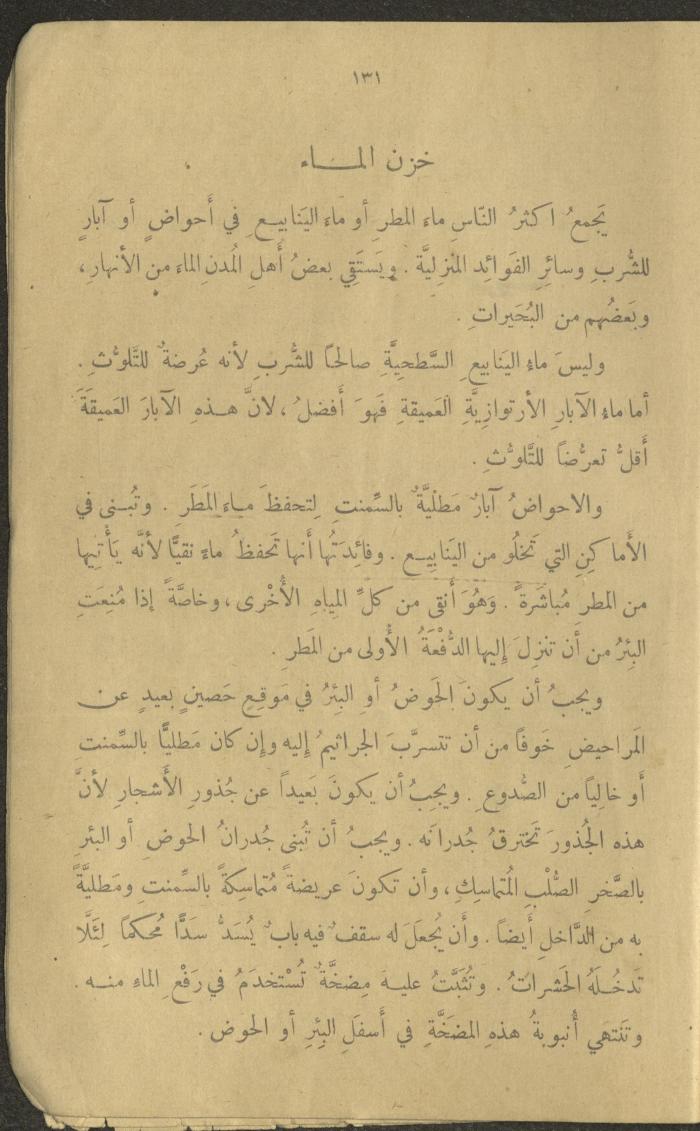 ١٣١
خزن المـــاء
يَجمعُ اكثرُ النّاسِ ماءَ المطرِ أو ماءَ اليَنابيـعِ في أَحواضٍ أو آبارٍ
للشُّربِ وسائرِ الفَوائدِ المَنزِليَّة . ويَستَقِي بعضُ أَهلِ المُدنِ الماءَ من الأنهارِ،
وبَعضُهم من البُحَيراتِ .
وليسَ ماءُ اليَنابيعِ السَّطحيَّةِ صالحًا للشُّربِ لأنه عُرضةٌ للتَّلوُّثِ .
أما ماءُ الآبارِ الأرتوازِيَّةِ العَميقةِ فَهوَ أَفضلُ ، لانَّ هـذهِ الآبارَ العَميقَةَ
أَقلُّ تعرُّضاً للتَّلوُّثِ .
والاحواضُ آبارٌ مَطْلِيَّةٌ بالسِّمنتِ لِتحفظَ مـاءَ المَطَرِ . وتُبـنى في
الأماكنِ التي تَخلُو من اليَنابيـع . وفائدَتُها أَنها تَحفظُ ماءً نقيًّا لأنَّه يَأْتيها
من المطرِ مُباشَرةً . وَهُوَ أَنقى من كلِّ المِياهِ الأُخْرى ، وخاصَّةً إذا مُنِعَتِ
البِئرُ من أن تنزِلَ إليها الدُّفْعَةُ الأُولى من المَطر .
ويجبُ أن يكونَ الحَوضُ أو البِئرُ في مَوقعٍ حَصينٍ بعيدٍ عن
المَراحيضِ خَوفًا من أن تتسرَّبَ الجراثيمُ إليه وإن كان مَطليًّا بالسِّمنتِ
أو خالِياً من الصُّدوعِ . ويجِبُ أن يكونَ بَعيداً عن جُذورِ الأَشجارِ لأنَّ
هذه الجُذورَ تَخترقُ جُدرانَه . ويجبُ أن تُبنى جُدرانُ الحوضِ أو البئرِ
بالصَّخرِ الصُّلْبِ المُتماسِكِ ، وأن تكونَ عريضةً مُتماسِكةً بالسِّمنتِ ومَطليَّةً
به من الدَّاخلِ أَيضاً . وأَن يُجعَلَ له سقفٌ فيه بابٌ يُسَدُّ سَدًّا مُحكماً لِئَلَّا
تَدخُـلَهُ الحَشراتُ . وتُثبَّتُ عليـهِ مِضخَّةٌ تُسْتخدَمُ في رَفْعِ الماءِ منـه .
وتَنتهي أُنبوبةُ هذهِ المضَخَّةِ في أَسفَلِ البِئرِ أو الحوض .